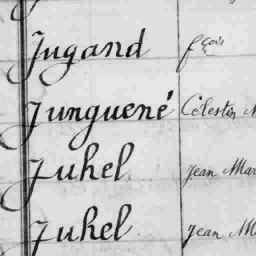 Jugand fçois
Junguené Célestin M
Juhel Jean Mar
Juhel Jean M